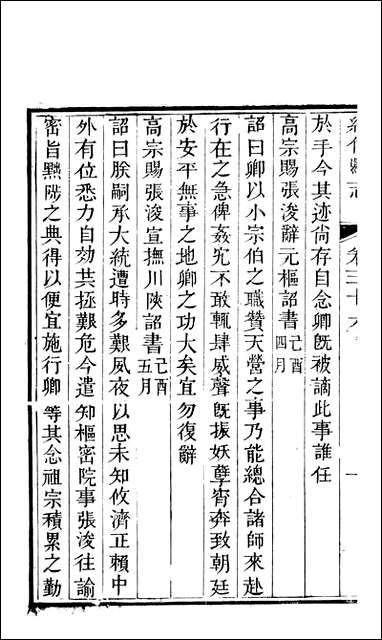 於手今其迹尙存自念卿旣被謫此事誰任
高宗賜張浚辭元樞詔書己酉四月
詔曰卿以小宗伯之職贊天營之事乃能總合諸師來赴
行在之急俾姦宄不敢輒肆威聲旣振妖孽宵奔致朝廷
於安平無事之地卿之功大矣宜勿復辭
高宗賜張浚宣撫川陝詔書己酉五月
詔曰朕嗣承大統遭時多艱夙夜以思未知攸濟正賴中
外有位悉力自効共拯艱危今遣知樞密院事張浚往諭
密旨黜陟之典得以便宜施行卿等其念祖宗積累之勤